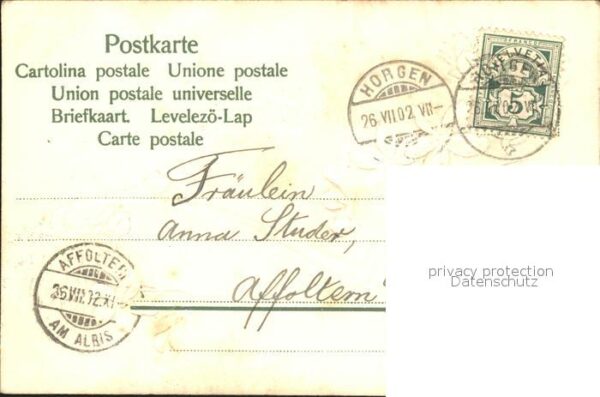 Postkarte
Cartolina postale Unione postale
Union postale universelle
Briefkaart. Levelezö-Lap
Carte postale
HORGEN
26.VII.02.VII–
HORGEN
FRANCO
HELVETIA
5
Fräulein
Anna Studer,
Affoltern
AFFOLTERN
26.VII.02.XI–
AM ALBIS
privacy protection
Datenschutz